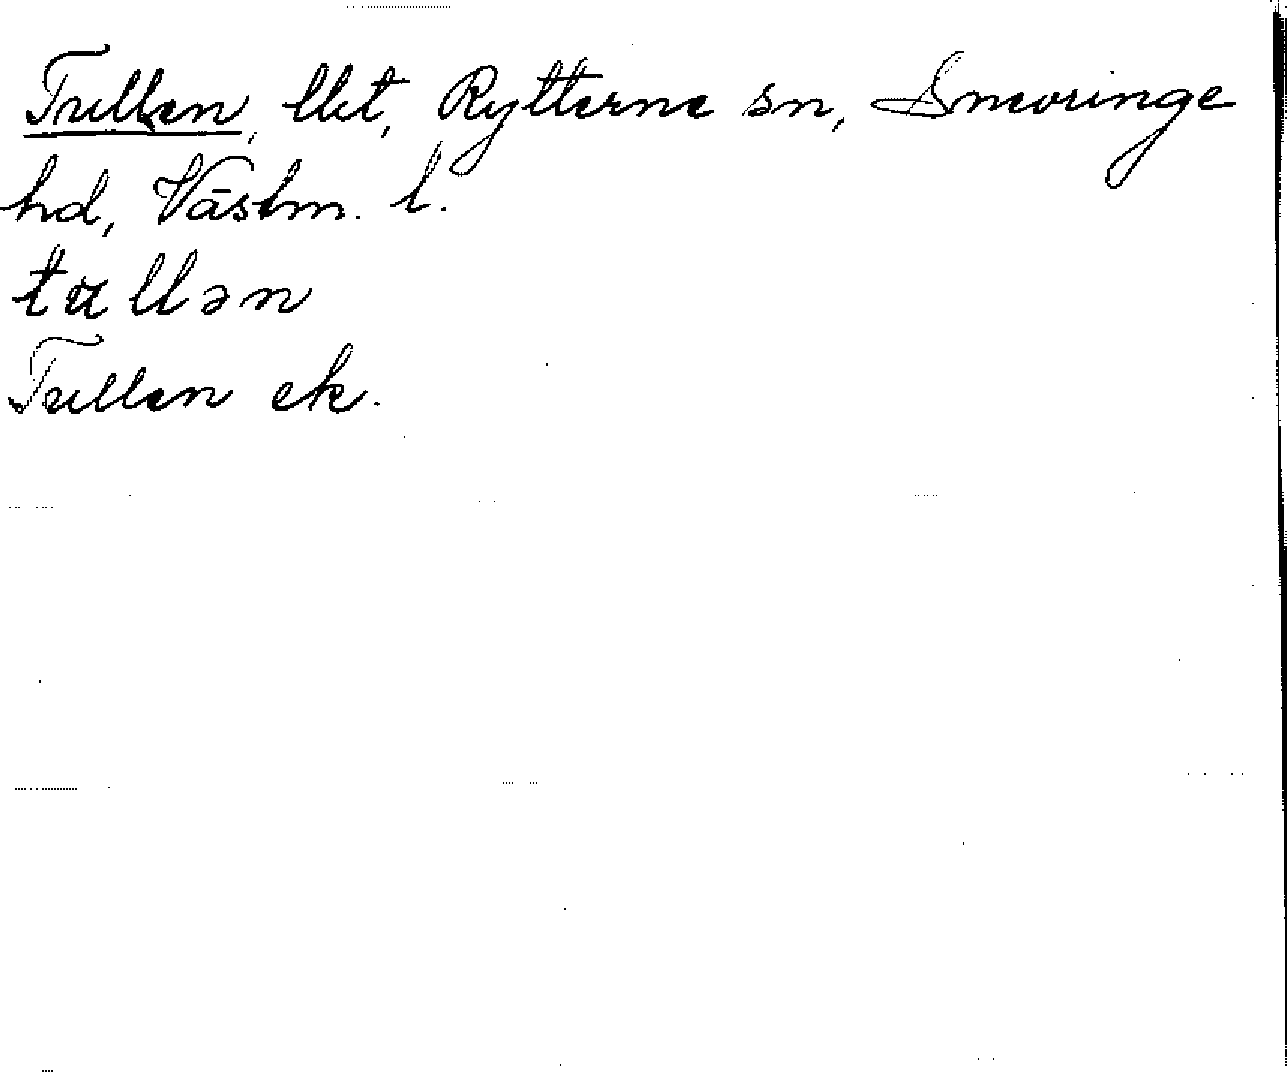 Tullen, lht, Rytterne sn, Snevringe
hd, Västm. l.
tullən
Tullen ek.